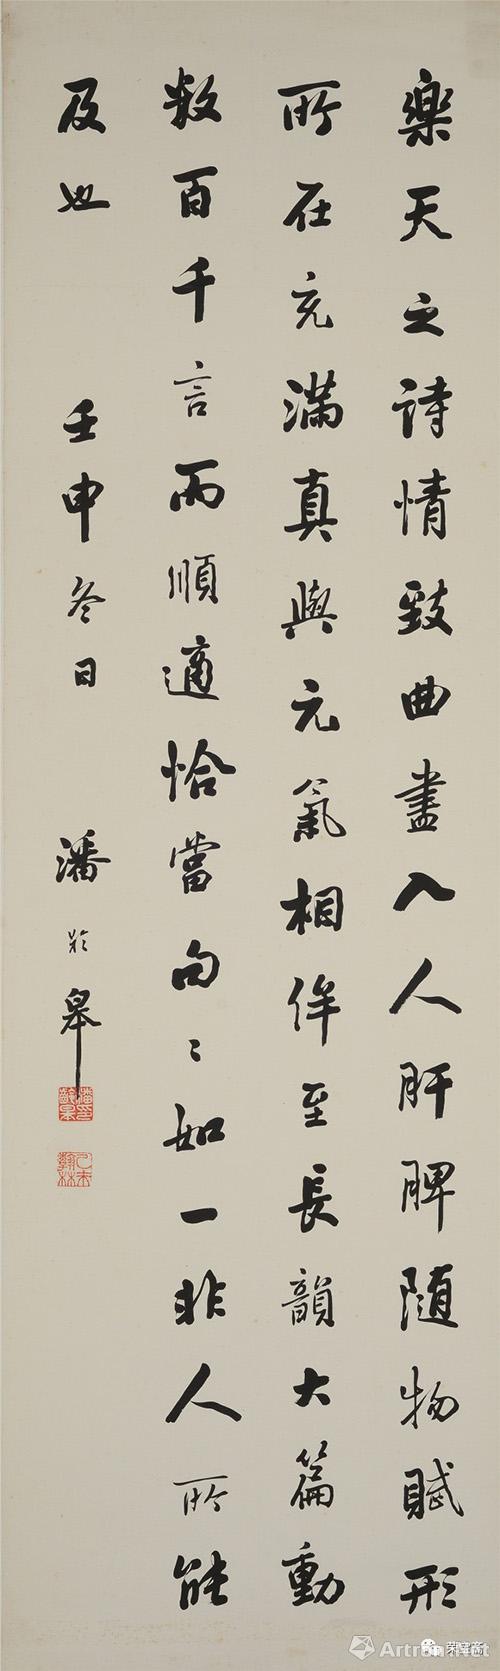 樂天之詩情致曲盡入人肝脾随物賦形
所在充滿真與元氣相侔至長韻大篇動
數百千言而順適恰當句〻如一非人所能
及也 壬申冬日 潘齡皋
潘印齡皋
乙未翰林
荣宝斋
Artron.Net